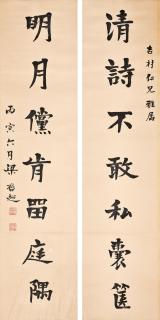 吉村仁兄雅屬
清詩不敢私囊篋
明月儻肯畱庭隅
丙寅六月梁啟超